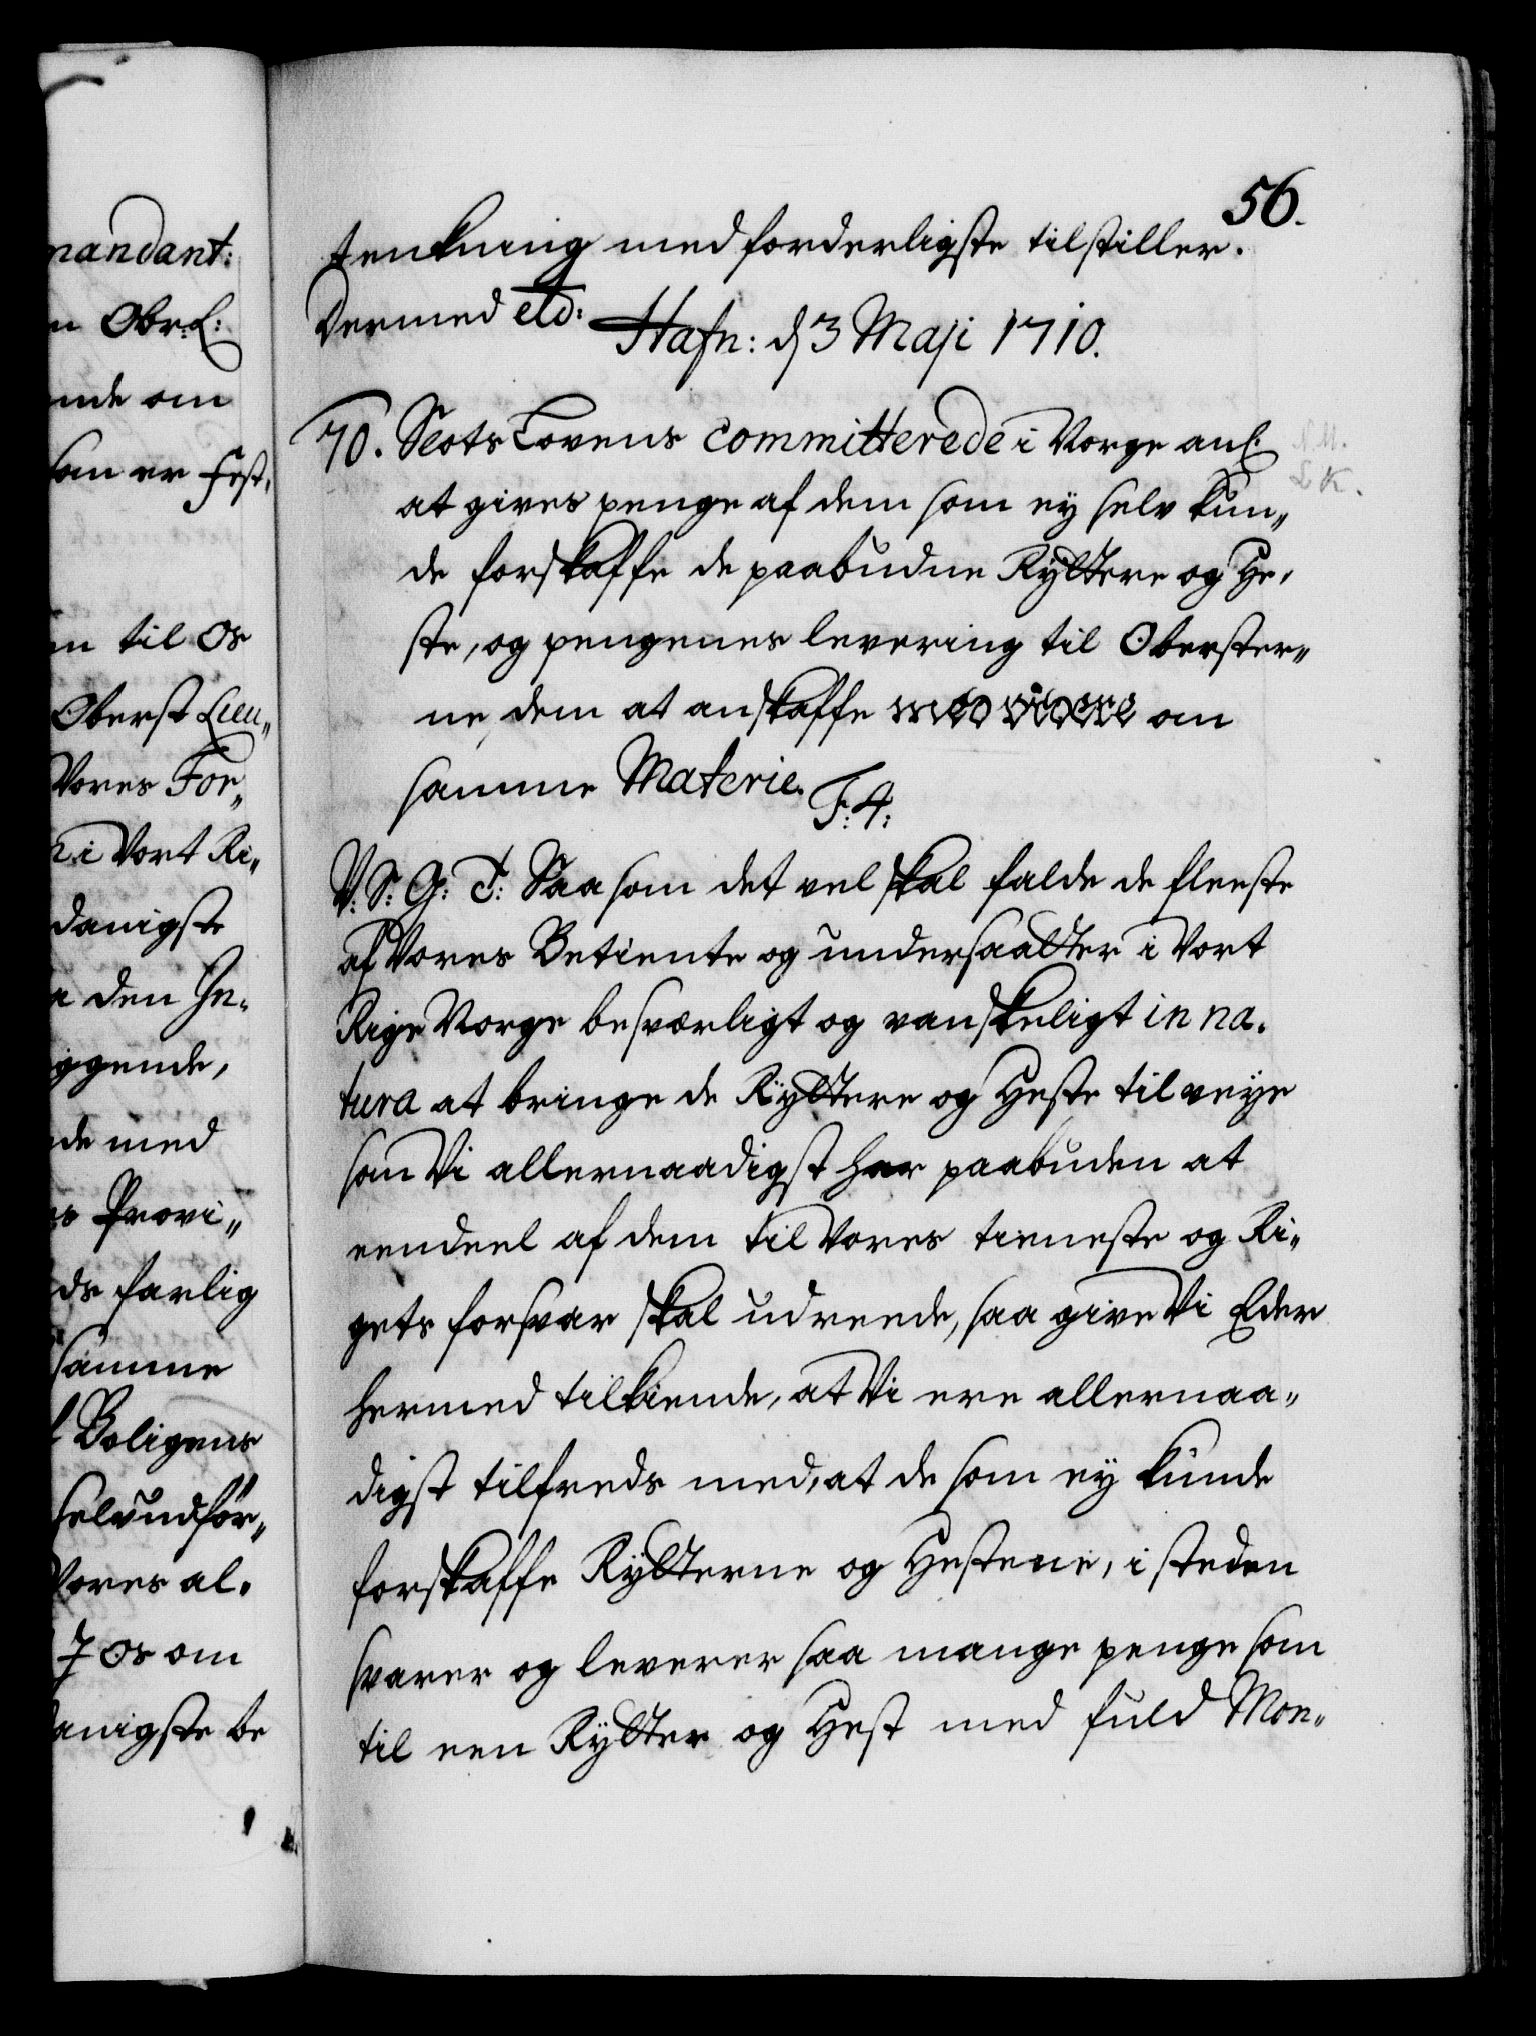 mandant:
n Obr.L:
nde om
som er Fest,
en til Os
Oberst Lieu„
Vores For„
i Vort Ri„
danigste
den He„
ggende,
de med
Provi„
ds farlig
samme
Boligens
selvudfør„
Vores al„
Os om
danigste be
56.
tenkning med forderligste tilstiller.
Dermed etc:
Hafn: d 3 Maji 1710.
70. Slots Lovens Committerede i Norge anl:
N.M.
L K.
at gives penge af dem som ey selv kun„
de forskaffe de paabudne Ryttere og He„
ste, og pengenes levering til Oberster„
ne dem at anskaffe med videre om
samme Materie. F: 4:
V: S: G: T: Saasom det vel skal falde de fleeste
af Vores Betiente og undersaatter i Vort
Rige Norge besværligt og vanskeligt in na„
tura at bringe de Ryttere og Heste tilveye
som Vi allernaadigst har paabuden at
eendeel af dem til Vores tieneste og Ri„
gets forsvar skal udreede, saa give Vi Eder
hermed tilkiende, at Vi ere allernaa„
digst tilfreds med, at de som ey kunde
forskaffe Rytterne og Hestene, i steden
svarer og leverer saa mange penge som
til een Rytter og Hest med fuld Mon„